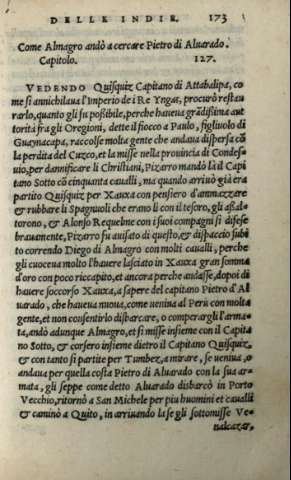 DELLE INDIE. 173
Come Almagro andò a cercare Pietro di Aluarado.
Capitolo. 127.
VEDENDO Quisquiz Capitano di Attabalipa, co
me si annichilaua l'Imperio de i Re Yngas, procurò restau
rarlo, quanto gli fu possibile, perche haueua grãdissima aut
torità fra gli Oregioni, dette il fiocco a Paulo, figliuolo di
Guaynacapa, raccolse molta gente che andaua dispersa cõ
la perdita del Cuzco, et la misse nella prouincia di Condes
uio, per dannificare li Christiani, Pizarro mandò là il Capi
tano Sotto cõ cinquanta caualli, ma quando arriuò già era
partito Quisquiz per Xauxa con pensiero d'ammazzare
& rubbare li Spagnuoli che erano lì con il tesoro, gli assal
torono, & Alonso Requelme con i suoi compagni si difese
brauamente, Pizarro fu auisato di questo, & dispacciò subi
to correndo Diego di Almagro con molti caualli, perche
gli cuoceua molto l'hauere lasciato in Xauxa gran somma
d'oro con poco riccapito, et ancora perche andasse, dopoi di
hauere soccorso Xauxa, a sapere del capitano Pietro d'Al
uarado, che haueua nuoua, come uenina al Perù con molta
gente, et non consentirlo disbarcare, o comperargli l'arma-
ta, andò adunque Almagro, et si misse insieme con il Capita
no Sotto, & corsero insieme dietro il Capitano Quisquiz,
& con tanto si partite per Tumbez, a mirare, se ueniua, o
andaua per quella costa Pietro di Aluarado con la sua ar-
mata, gli seppe come detto Aluarado disbarcò in Porto
Vecchio, ritornò a San Michele per piu huomini et caualli
& caminò a Quito, in arriuando là se gli sottomisse Ve-
nalcazar,